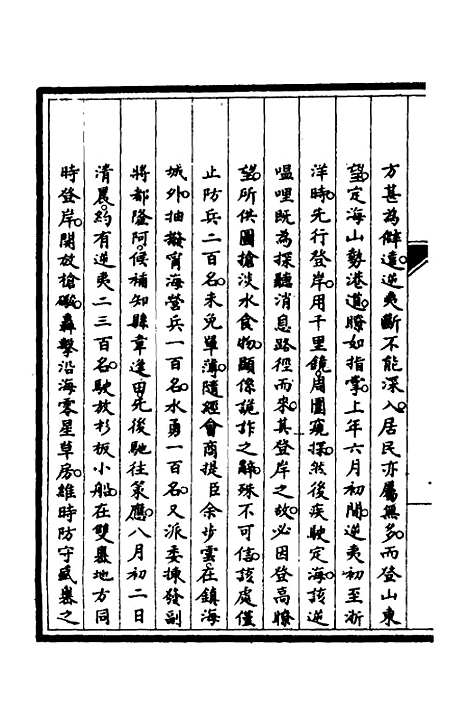 方甚為僻遠逆夷斷不能深入居民亦屬無多而登山東
望定海山勢港道瞭如指掌上年六月初間逆夷初至浙
洋時先行登岸用千里鏡周圍窺探然後疾駛定海該逆
嗢哩既為探聽消息路徑而來其登岸之故必因登高瞭
望所供圖搶淡水食物顯係詭詐之辭殊不可信該處僅
止防兵二百名未免單薄隨經會商提臣余步雲在鎮海
城外抽撥甯海營兵一百名水勇一百名又派委揀發副
將都隆阿候補知縣韋逢甲先後馳往策應八月初二日
清晨約有逆夷二三百名駛放杉板小船在雙嶴地方同
時登岸開放槍礮轟擊沿海零星草房維時防守盛嶴之